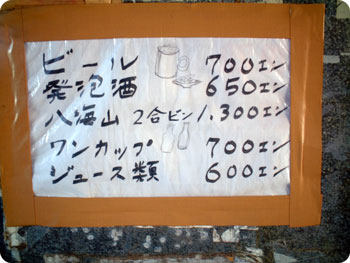 ビール 700エン
発泡酒 650エン
八海山 2合ビン 1,300エン
ワンカップ 700エン
ジュース類 600エン